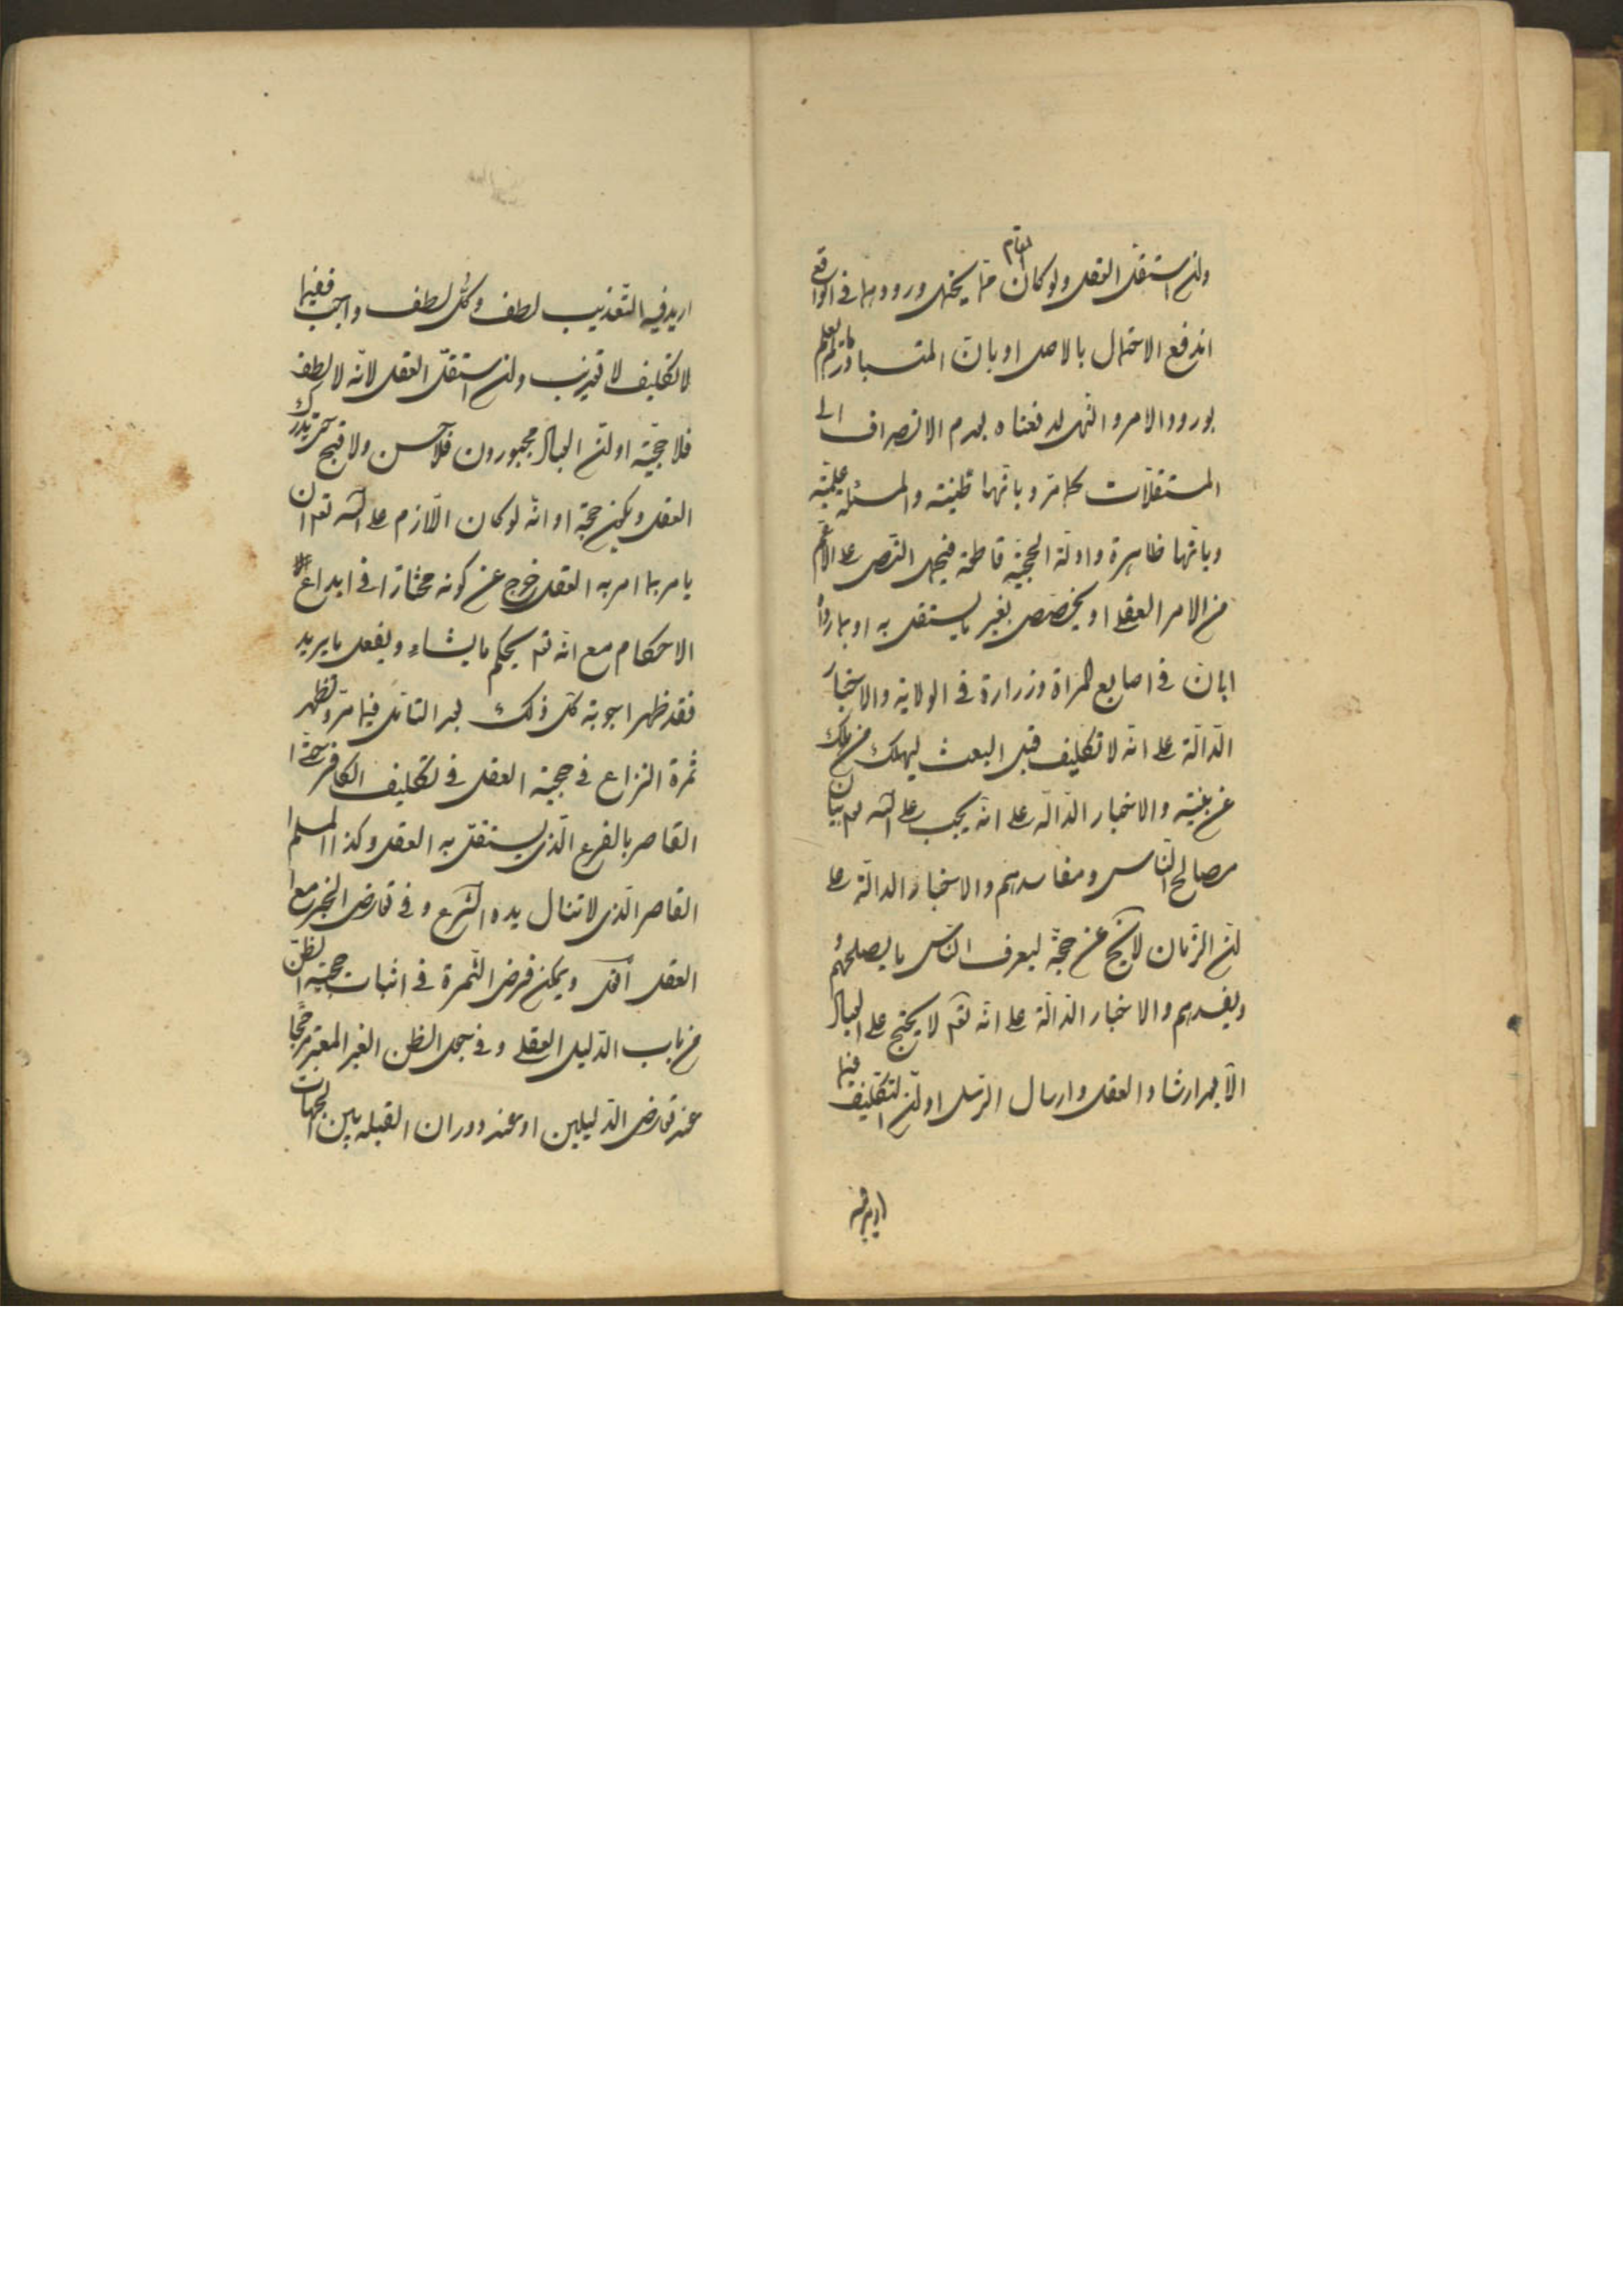 وان استقل العقل ولو كان المقام مما يحتمل ورودهما في الواقع
اندفع الاحتمال بالاصل او بان المتبادر ما لم يعلم
بورود الامر والنهى لدفعناه بعدم الانصراف الى
المستقلات كما مر وبانها ظنية والمسئلة علمية
وبانها ظاهرة وادلة الحجية قاطعة فيحمل النص على الاعم
من الامر العقلي او يخصص بغير ما يستقل به او بما رواه
ابان في اصابع المراة وزرارة في الولاية والاخبار
الدالة على انه لا تكليف قبل البعث ليهلك من هلك
عن بينة والاخبار الدالة على انه يجب على الله تع بيان
مصالح الناس ومفاسدهم والاخبار الدالة على
ان الزمان لا يخ عن حجة ليعرف الناس ما يصلحهم
ويفسدهم والاخبار الدالة على انه تع لا يحتج على العباد
الا بعد ارشاد العقل وارسال الرسل او ان التكليف فيما
اريد فيه
اريد فيه التعذيب لطف وكل لطف واجب ففيما
لا تكليف لا تعذيب وان استقل العقل لانه لا لطف
فلا حجية او ان العباد مجبورون فلا حسن ولا قبح حتى يدرك
العقل ويكون حجة او انه لو كان اللازم على الله تع ان
يامر بما امر به العقل خرج عن كونه مختارا في ابداع
الاحكام مع انه تع يحكم ما يشاء ويفعل ما يريد
فقد ظهر اجوبة كل ذلك بعد التامل فيما مر وتظهر
ثمرة النزاع في حجية العقل في تكليف الكافر
القاصر بالفرع الذى يستقل به العقل وكذا المسلم
القاصر الذى لا تنال يده الشرع وفي تعارض الخبر مع
العقل ويمكن فرض الثمرة في اثبات حجية الظن
من باب الدليل العقلي وفي جعل الظن الغير المعتبر مرجحا
عند تعارض الدليلين او عند دوران القبلة بين الجهات